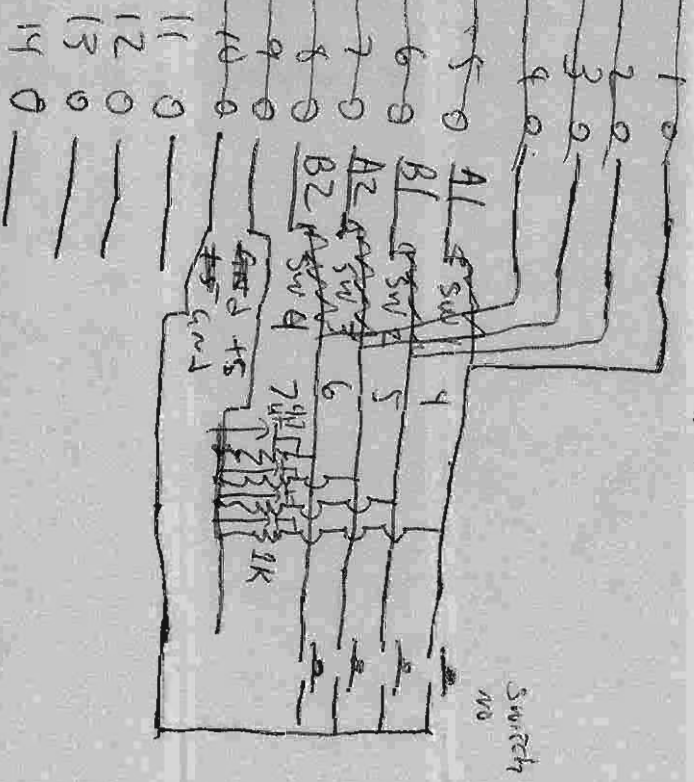 1
2
3
4
5
6
7
8
9
10
11
12
13
14
A1
B1
A2
B2
SW
SW
SW
SW 4
4
5
6
7
+5
Gnd
+5
Gnd
1K
Switch
NO